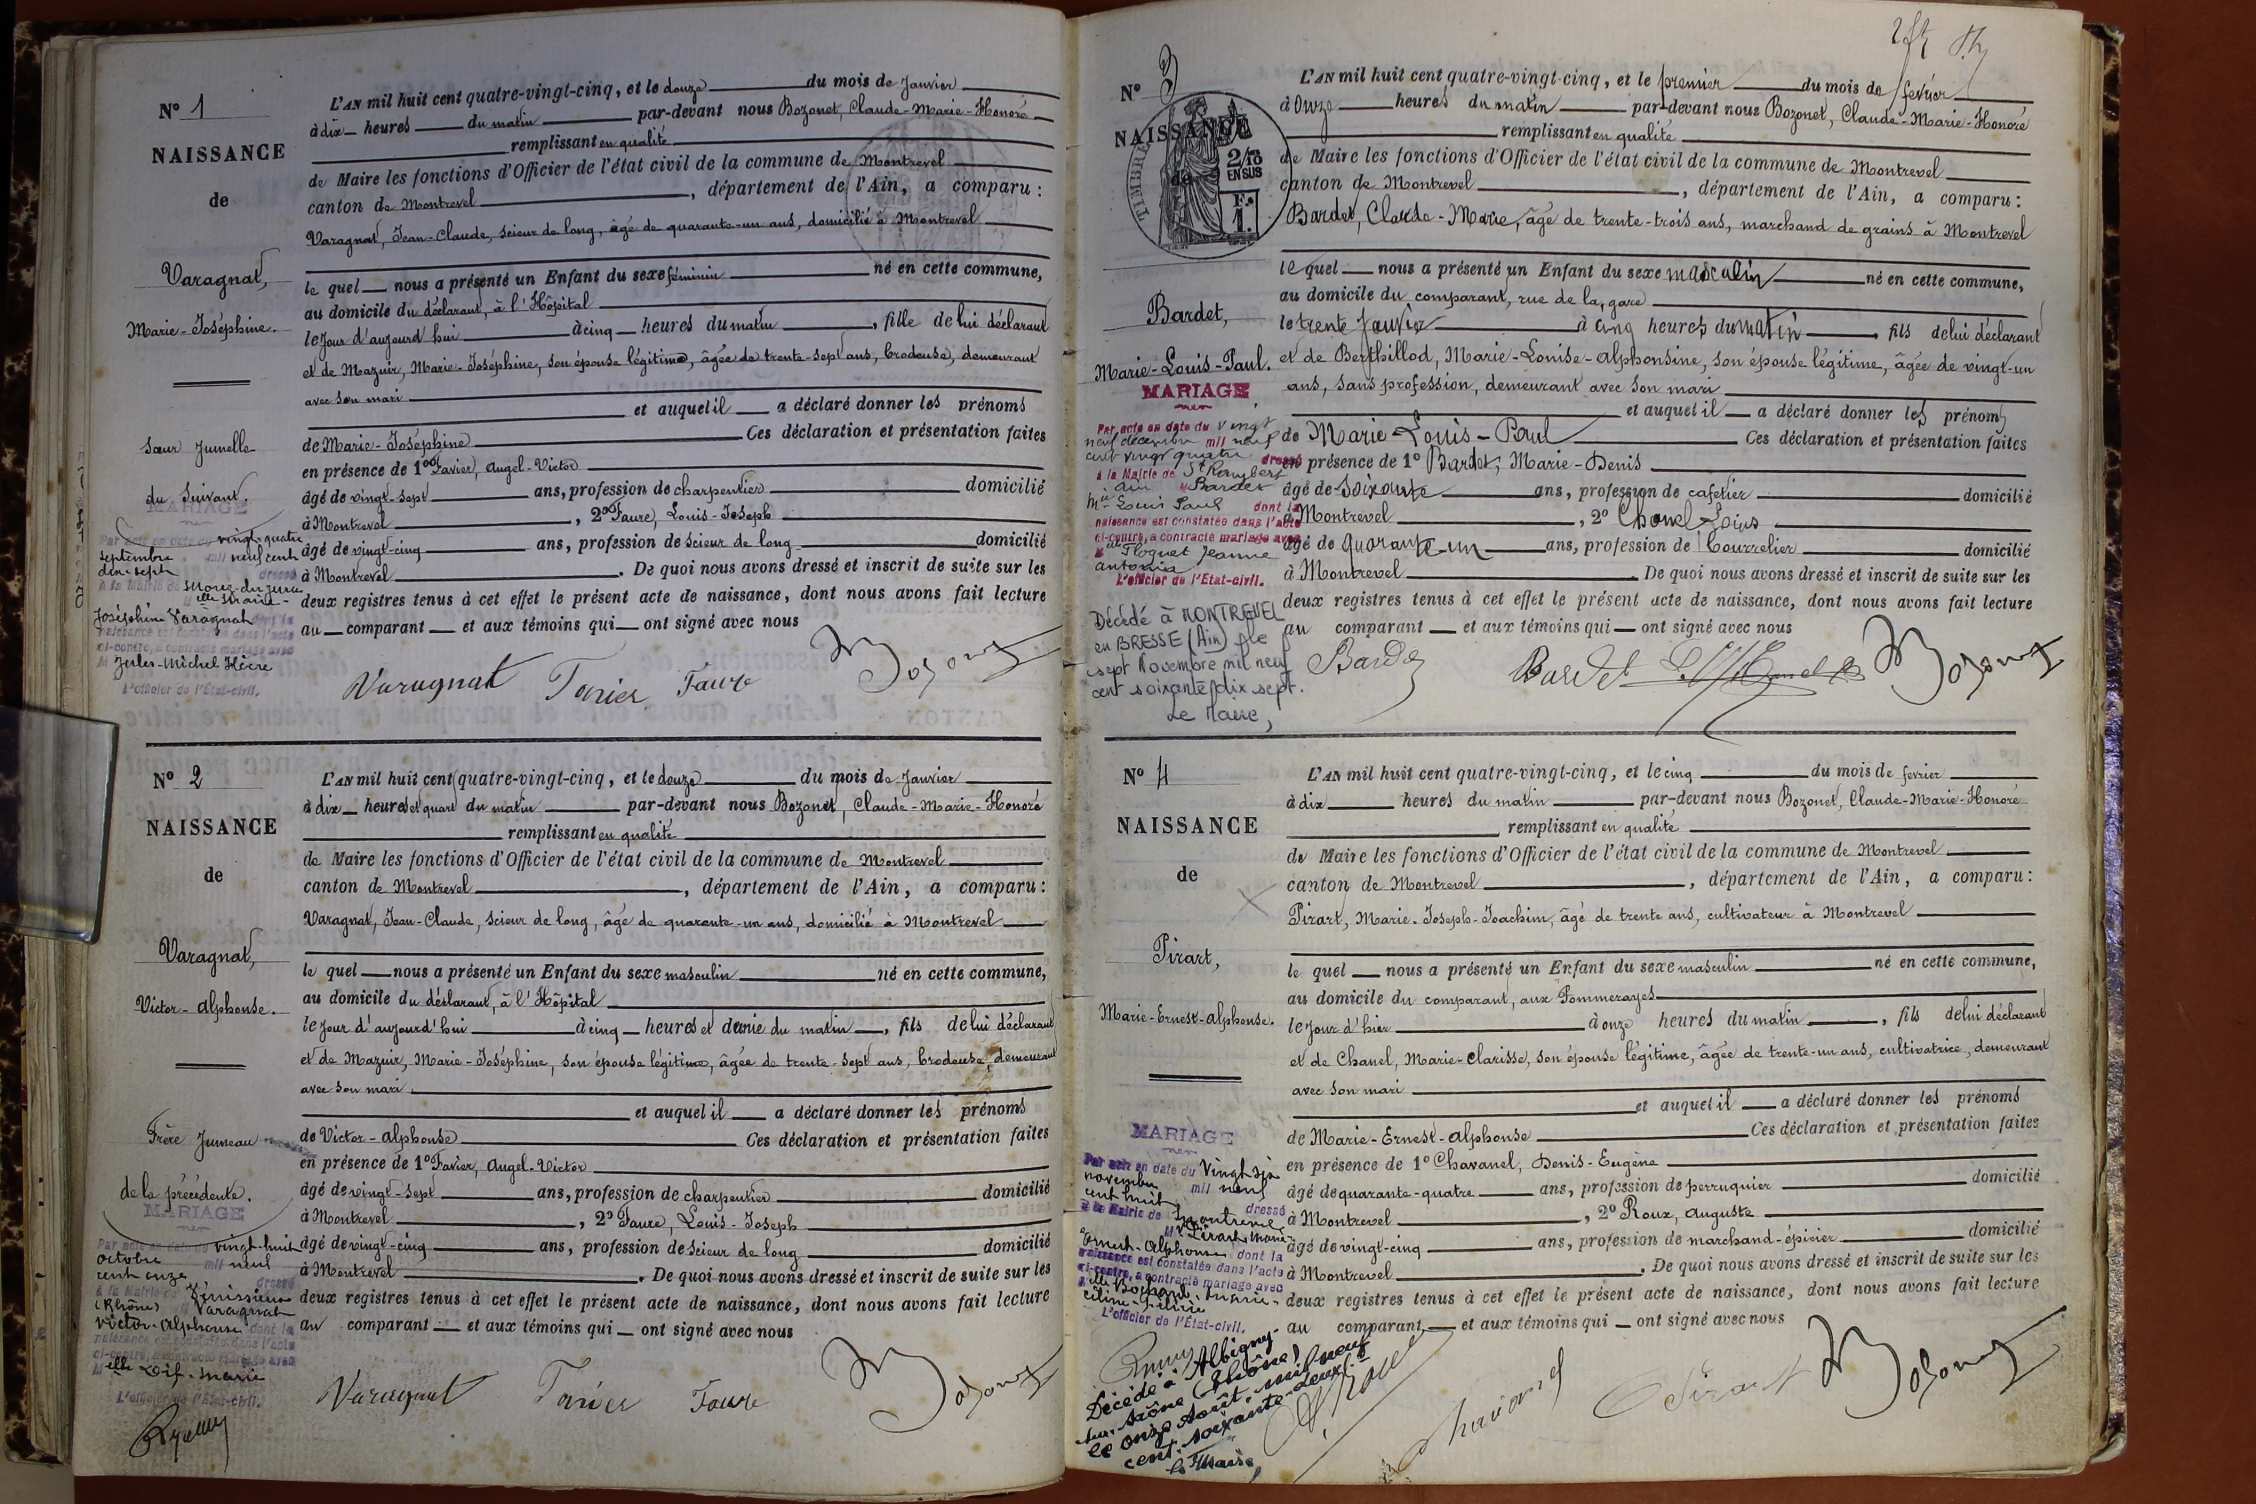 N° 1
NAISSANCE
de
Varagnat,
Marie-Joséphine.
Sœur Jumelle
du Suivant.
MARIAGE
Par acte en date du vingt-quatre
septembre mil neuf cent
dix-sept dressé
à la Mairie de Morez-du-Jura
Melle Marie-
Joséphine Varagnat dont la
naissance est constatée dans l'acte
ci-contre, a contracté mariage avec
M Jules-Michel
L'officier de l'État-civil.
L'AN mil huit cent quatre-vingt-cinq, et le douze du mois de Janvier
à dix heures du matin par-devant nous Bozonet, Claude-Marie-Honoré
remplissant en qualité
de Maire les fonctions d'Officier de l'état civil de la commune de Montrevel
canton de Montrevel, département de l'Ain, a comparu:
Varagnat, Jean-Claude, scieur de long, âgé de quarante-un ans, domicilié à Montrevel
le quel nous a présenté un Enfant du sexe féminin né en cette commune,
au domicile du déclarant, à l'Hôpital
le jour d'aujourd'hui à cinq heures du matin, fille de lui déclarant
et de Mazuir, Marie-Joséphine, son épouse légitime, âgée de trente-sept ans, brodeuse, demeurant
avec son mari
et auquel il a déclaré donner les prénoms
de Marie-Joséphine Ces déclaration et présentation faites
en présence de 1° Favier, Angel-Victor
âgé de vingt-sept ans, profession de charpentier domicilié
à Montrevel, 2° Faure, Louis-Joseph
âgé de vingt-cinq ans, profession de scieur de long domicilié
à Montrevel. De quoi nous avons dressé et inscrit de suite sur les
deux registres tenus à cet effet le présent acte de naissance, dont nous avons fait lecture
au comparant et aux témoins qui ont signé avec nous
Varagnat Favier Faure Bozonet
N° 2
NAISSANCE
de
Varagnat,
Victor-Alphonse.
Frère Jumeau
de la précédente.
MARIAGE
Par acte en date du vingt-huit
octobre mil neuf
cent onze dressé
à la Mairie de Vénissieux
(Rhône) M Varagnat
Victor-Alphonse dont la
naissance est constatée dans l'acte
ci-contre, a contracté mariage avec
Melle Marie
L'officier de l'État-civil.
L'AN mil huit cent quatre-vingt-cinq, et le douze du mois de Janvier
à dix heures et quart du matin par-devant nous Bozonet, Claude-Marie-Honoré
remplissant en qualité
de Maire les fonctions d'Officier de l'état civil de la commune de Montrevel
canton de Montrevel, département de l'Ain, a comparu:
Varagnat, Jean-Claude, scieur de long, âgé de quarante-un ans, domicilié à Montrevel
le quel nous a présenté un Enfant du sexe masculin né en cette commune,
au domicile du déclarant, à l'Hôpital
le jour d'aujourd'hui à cinq heures et demie du matin, fils de lui déclarant
et de Mazuir, Marie-Joséphine, son épouse légitime, âgée de trente-sept ans, brodeuse, demeurant
avec son mari
et auquel il a déclaré donner les prénoms
de Victor-Alphonse Ces déclaration et présentation faites
en présence de 1° Favier, Angel-Victor
âgé de vingt-sept ans, profession de charpentier domicilié
à Montrevel, 2° Faure, Louis-Joseph
âgé de vingt-cinq ans, profession de scieur de long domicilié
à Montrevel. De quoi nous avons dressé et inscrit de suite sur les
deux registres tenus à cet effet le présent acte de naissance, dont nous avons fait lecture
au comparant et aux témoins qui ont signé avec nous
Varagnat Favier Faure Bozonet
N° 3
NAISSANCE
de
TIMBRE
2/10
EN SUS
F.
1.
Bardet,
Marie-Louis-Paul.
MARIAGE
Par acte en date du vingt
neuf décembre mil neuf
cent vingt quatre dressé
à la Mairie de St Rambert
Ain M Bardet
Mie Louis Paul dont la
naissance est constatée dans l'acte
ci-contre, a contracté mariage avec
Melle Floquet Jeanne
Antonia
L'officier de l'Etat-civil.
Décédé à MONTREVEL
en BRESSE (Ain) le
sept Novembre mil neuf
cent soixante dix sept.
Le Maire,
L'AN mil huit cent quatre-vingt-cinq, et le premier du mois de février
à onze heures du matin par-devant nous Bozonet, Claude-Marie-Honoré
remplissant en qualité
de Maire les fonctions d'Officier de l'état civil de la commune de Montrevel
canton de Montrevel, département de l'Ain, a comparu:
Bardet, Claude-Marie, âgé de trente-trois ans, marchand de grains à Montrevel
le quel nous a présenté un Enfant du sexe masculin né en cette commune,
au domicile du comparant, rue de la gare
le trente Janvier à cinq heures du matin, fils de lui déclarant
et de Berthillod, Marie-Louise-Alphonsine, son épouse légitime, âgée de vingt-un
ans, sans profession, demeurant avec son mari
et auquel il a déclaré donner les prénoms
de Marie-Louis-Paul Ces déclaration et présentation faites
en présence de 1° Bardet, Marie-Denis
âgé de soixante ans, profession de cafetier domicilié
à Montrevel, 2° Chanel Louis
âgé de quarante-un ans, profession de bourrelier domicilié
à Montrevel. De quoi nous avons dressé et inscrit de suite sur les
deux registres tenus à cet effet le présent acte de naissance, dont nous avons fait lecture
au comparant et aux témoins qui ont signé avec nous
Bardet Bardet Bozonet
N° 4
NAISSANCE
de
Pirart,
Marie-Ernest-Alphonse.
MARIAGE
Par acte en date du vingt six
novembre mil neuf
cent huit dressé
à la Mairie de Montrevel
M Pirart Marie-
Ernest-Alphonse dont la
naissance est constatée dans l'acte
ci-contre, a contracté mariage avec
Melle Bochard Marie-
L'officier de l'État-civil.
Décédé à Albigny-
sur-Saône (Rhône)
le onze Août mil neuf
cent soixante-deux
le Maire,
L'AN mil huit cent quatre-vingt-cinq, et le cinq du mois de février
à dix heures du matin par-devant nous Bozonet, Claude-Marie-Honoré
remplissant en qualité
de Maire les fonctions d'Officier de l'état civil de la commune de Montrevel
canton de Montrevel, département de l'Ain, a comparu:
Pirart, Marie-Joseph-Joachim, âgé de trente ans, cultivateur à Montrevel
le quel nous a présenté un Enfant du sexe masculin né en cette commune,
au domicile du comparant, aux Pommerayes
le jour d'hier à onze heures du matin, fils de lui déclarant
et de Chanel, Marie-Clarisse, son épouse légitime, âgée de trente-un ans, cultivatrice, demeurant
avec son mari
et auquel il a déclaré donner les prénoms
de Marie-Ernest-Alphonse Ces déclaration et présentation faites
en présence de 1° Chavanel, Denis-Eugène
âgé de quarante-quatre ans, profession de perruquier domicilié
à Montrevel, 2° Roux, Auguste
âgé de vingt-cinq ans, profession de marchand-épicier domicilié
à Montrevel. De quoi nous avons dressé et inscrit de suite sur les
deux registres tenus à cet effet le présent acte de naissance, dont nous avons fait lecture
au comparant et aux témoins qui ont signé avec nous
A. Roux Chavanel Pirart Bozonet